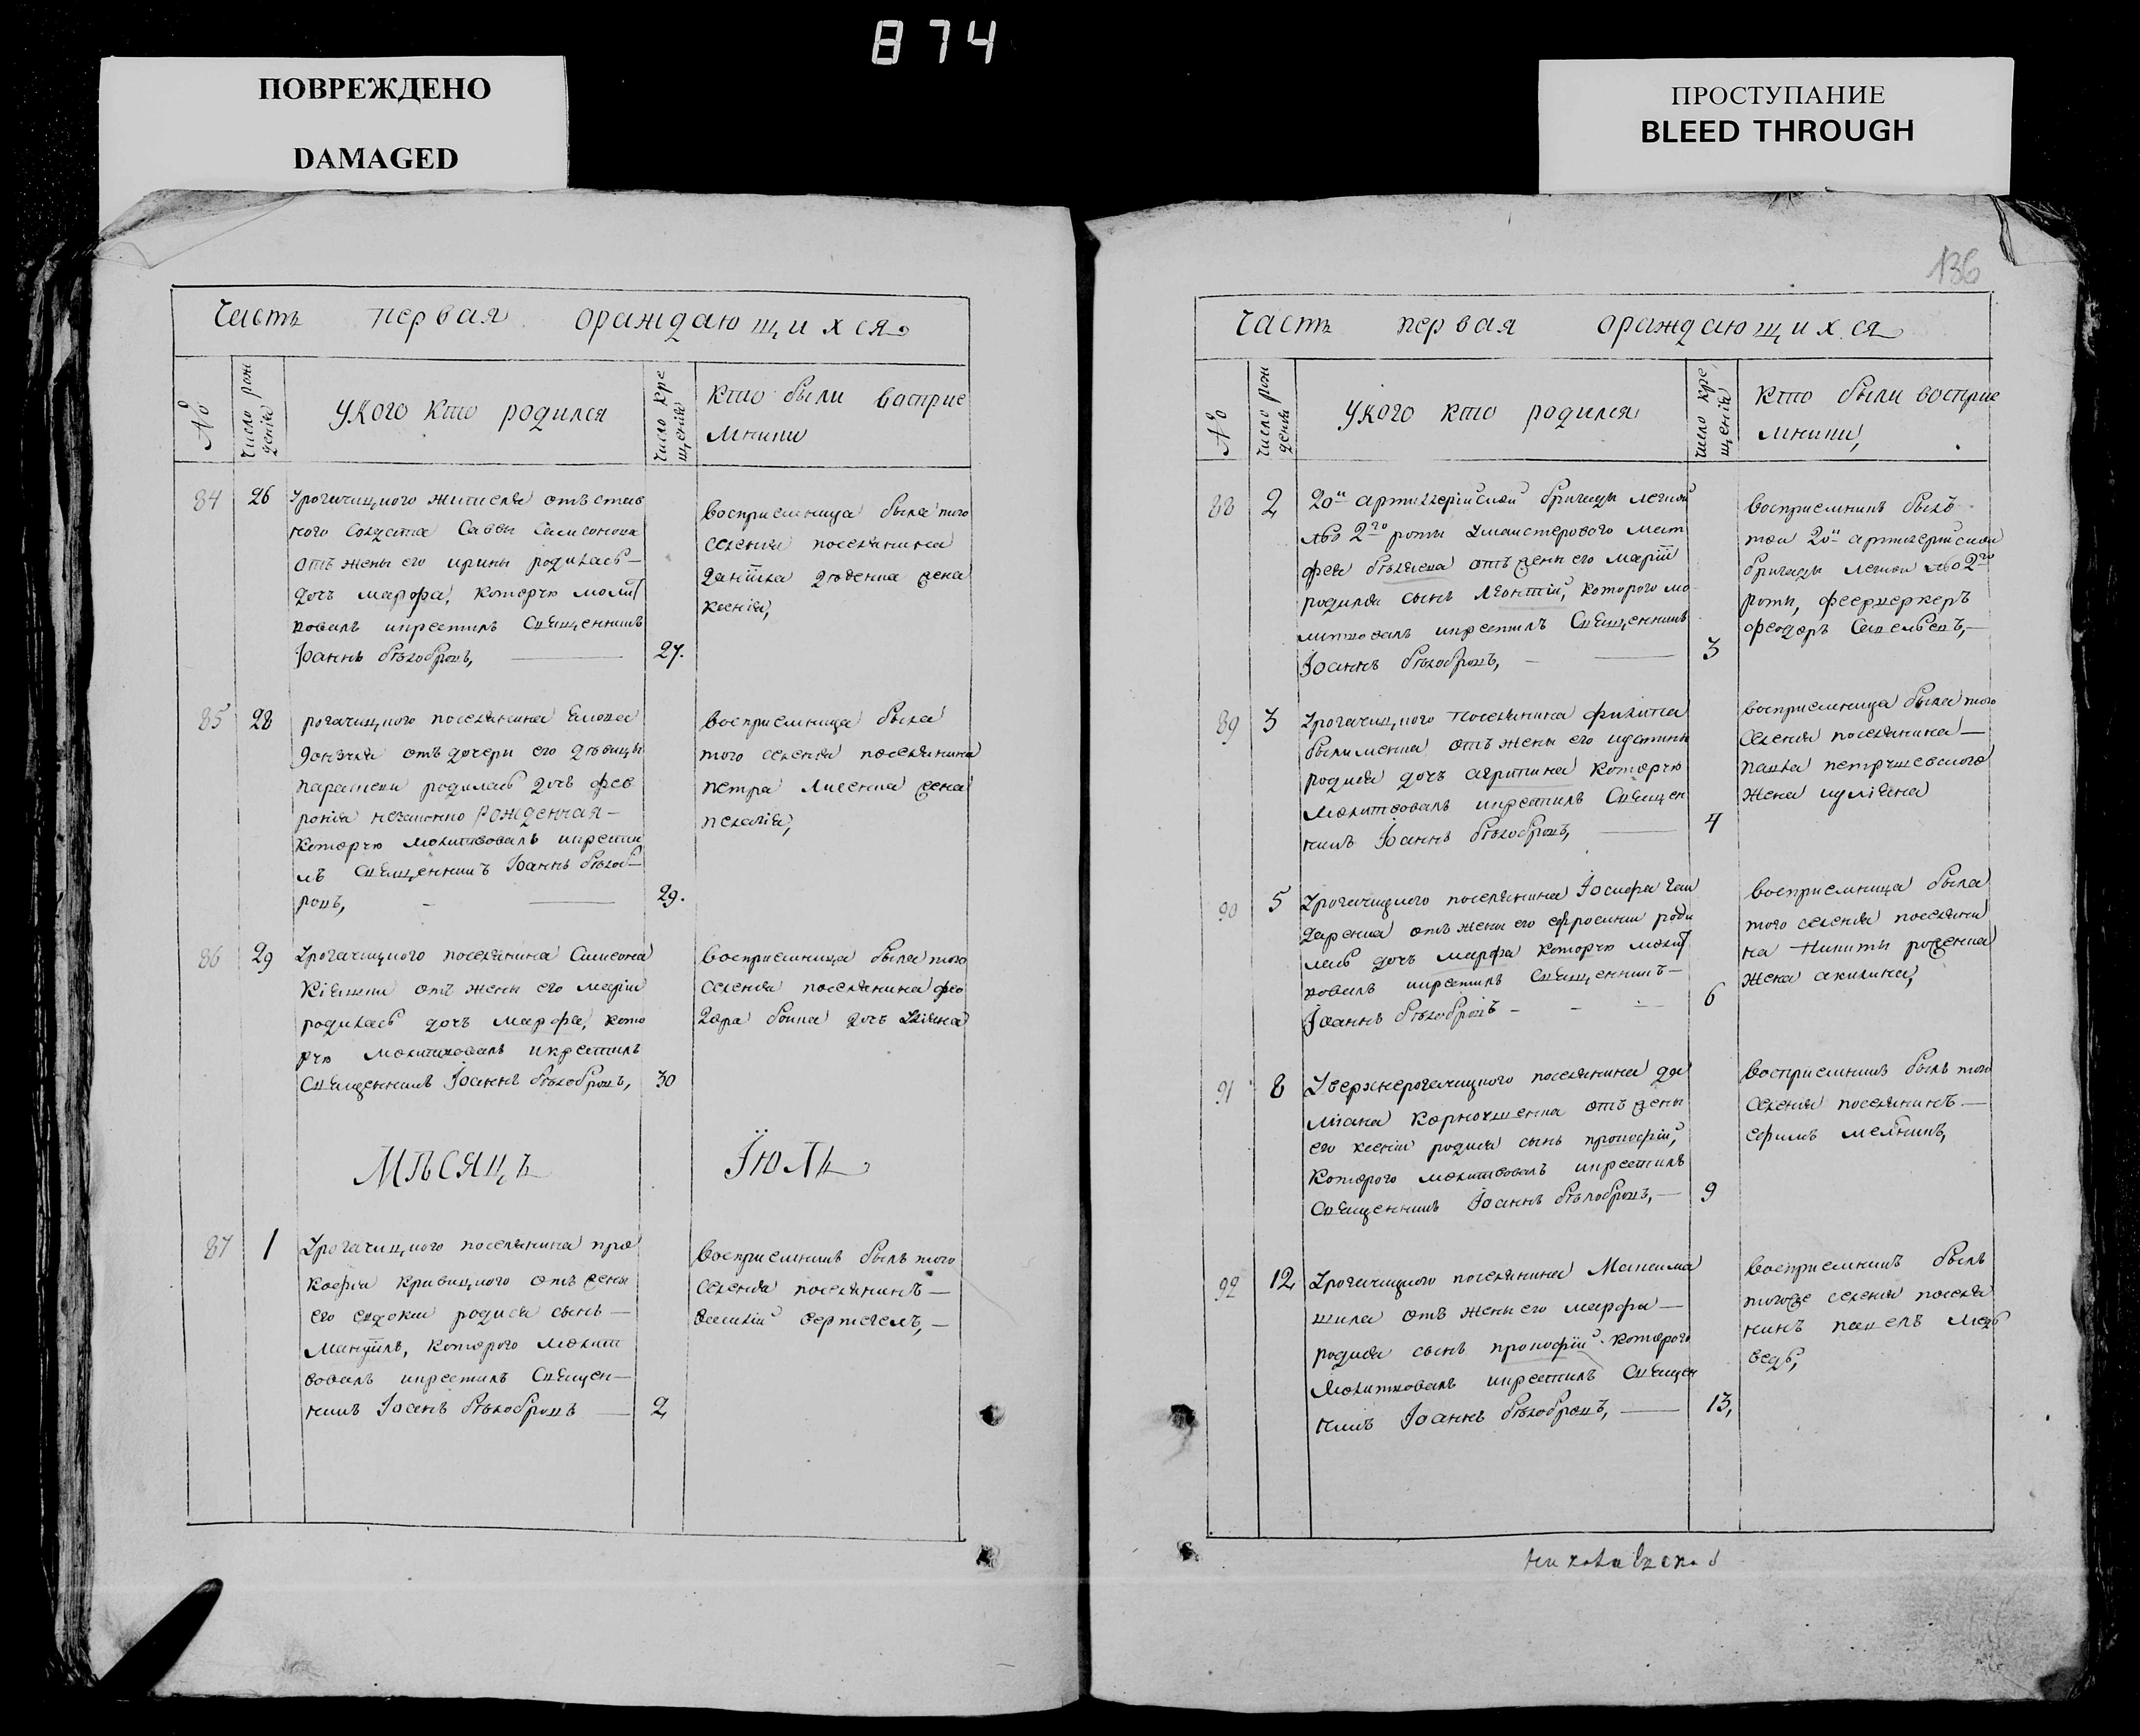 874
ПОВРЕЖДЕНО
DAMAGED
ПРОСТУПАНИЕ
BLEED THROUGH
Часть первая ораждающихся
№
Число рож
денія
Укого кто родился
Число кре
щенія
Кто были восприе
мники
84 26 Урогачицкого жителя отъстав
ного солдата Саввы Самсонова
отъ жены его ирины родилась
дочъ марфа, которую молит
вовалъ икрестилъ Священникъ
Іоаннъ бѣлобровъ, 27.
восприемница была того
селенія поселянина
данійла дюбенка жена
ксенія,
85 28 рогачицкого поселянина
отъ дочери его дѣвицы
параскеви родилась дочъ фев
ронія незаконно рожденная
которую молитвовалъ икрести
лъ Священникъ Іоаннъ бѣлоб
ровъ, 29.
восприемница была
того селенія поселянина
петра лисенка жена
пелагія,
86 29 Урогачицкого поселянина Симеона
Кіяшки отъ жены его маріи
родилась дочъ марфа, кото
рую молитвовалъ икрестилъ
Священникъ Іоаннъ бѣлобровъ, 30
восприемница была того
селенія поселянина фео
дора бойка дочъ
МѢСЯЦЪ ІЮЛЬ
87 1 Урогачицкого поселянина про
кофія кривицкого отъ жены
его евдокіи родися сынъ
мануйлъ, которого молит
вовалъ икрестилъ Священ
никъ Іоанъ бѣлобровъ 2
восприемникъ былъ того
селенія поселянинъ
василій вертегелъ,
136
Часть первая ораждающихся
№
Число рож
денія
Укого кто родился
Число кре
щенія
Кто были восприе
мники,
88 2 20й артиллерійской бригады легкой
№ 2го роты
фея бѣляева отъ жены его маріи
родился сынъ Леонтій, которого мо
литвовалъ икрестилъ Священникъ
Іоаннъ бѣлобровъ, 3
восприемникъ былъ
той 20й артилерійской
бригады легкой № 2го
роты, феерверкеръ
феодоръ Савельевъ,
89 3 Урогачицкого поселянина филипа
отъ жены его иустины
родися дочъ агрипина которую
молитвовалъ икрестилъ Священ
никъ Іоаннъ бѣлобровъ, 4
восприемница была того
селенія поселянина
павла петрушевского
жена иуліяна
90 5 Урогачицкого поселянина Іосифа гай
даренка отъ жены его ефросиніи роди
лась дочъ марфа которую молит
вовалъ икрестилъ Священникъ
Іоаннъ бѣлобровъ 6
восприемница была
того селенія поселяни
на никиты роженка
жена акилина,
91 8 Уверхнерогачицкого поселянина да
міана корнюшенка отъ жены
его ксеніи родися сынъ прокофій,
которого молитвовалъ икрестилъ
Священникъ Іоаннъ бѣлобровъ, 9
восприемникъ былъ того
селенія поселянинъ
ефимъ мелникъ,
92 12 Урогачицкого поселянина Максима
шила отъ жены его марфы
родися сынъ прокофій которого
молитвовалъ икрестилъ Священ
никъ Іоаннъ бѣлобровъ, 13,
восприемникъ былъ
тогоже селенія поселя
нинъ павелъ медь
ведь,